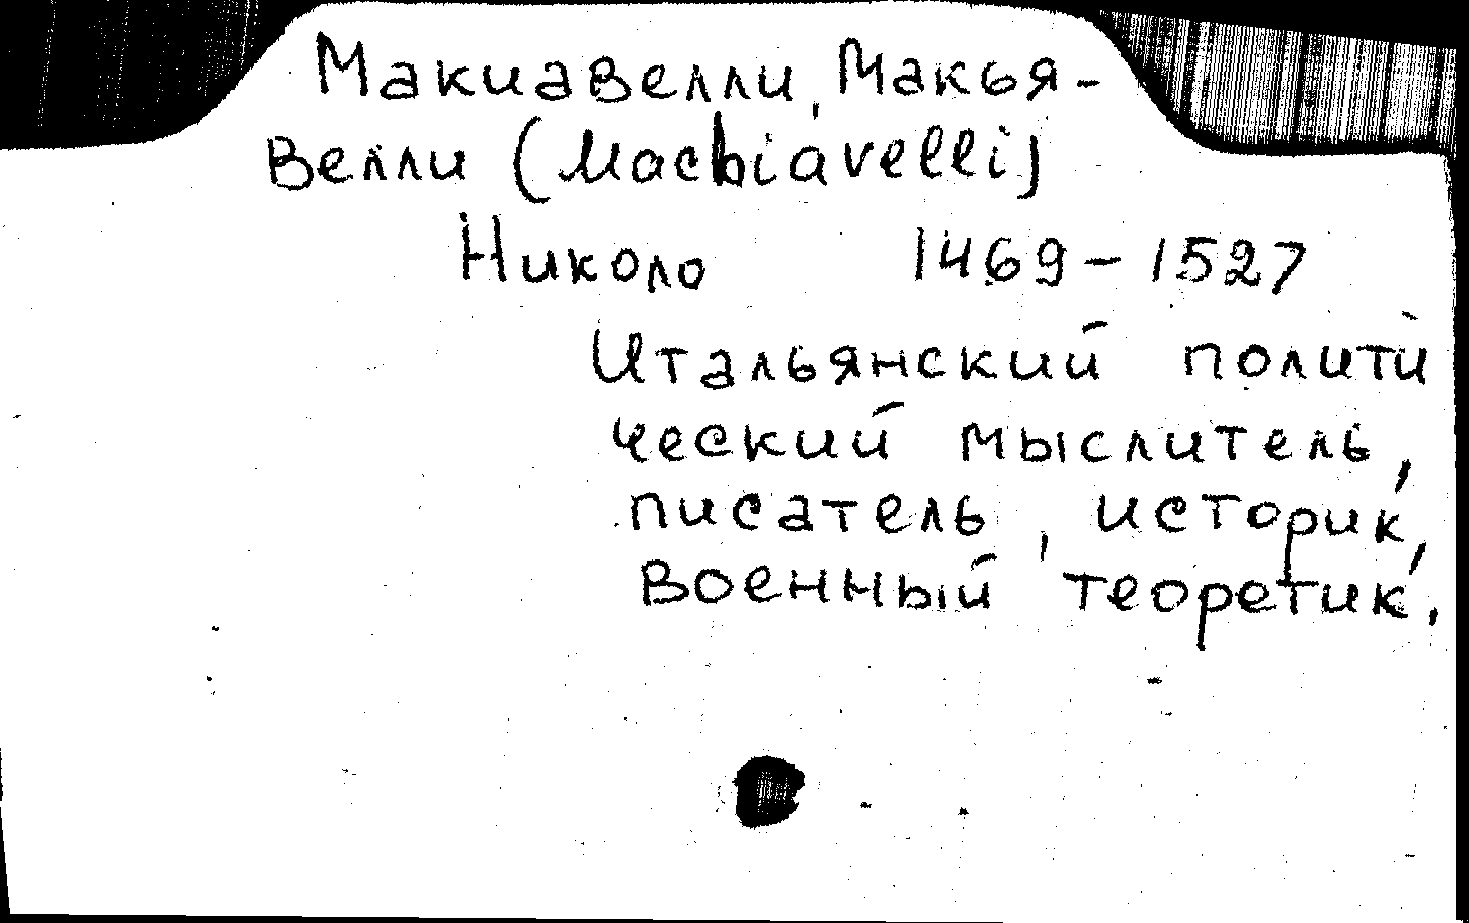 Макиавелли, Макья-
велли (Machiavelli)
Николо 1469-1527
Итальянский полити
ческий мыслитель,
писатель, историк,
военный теоретик.